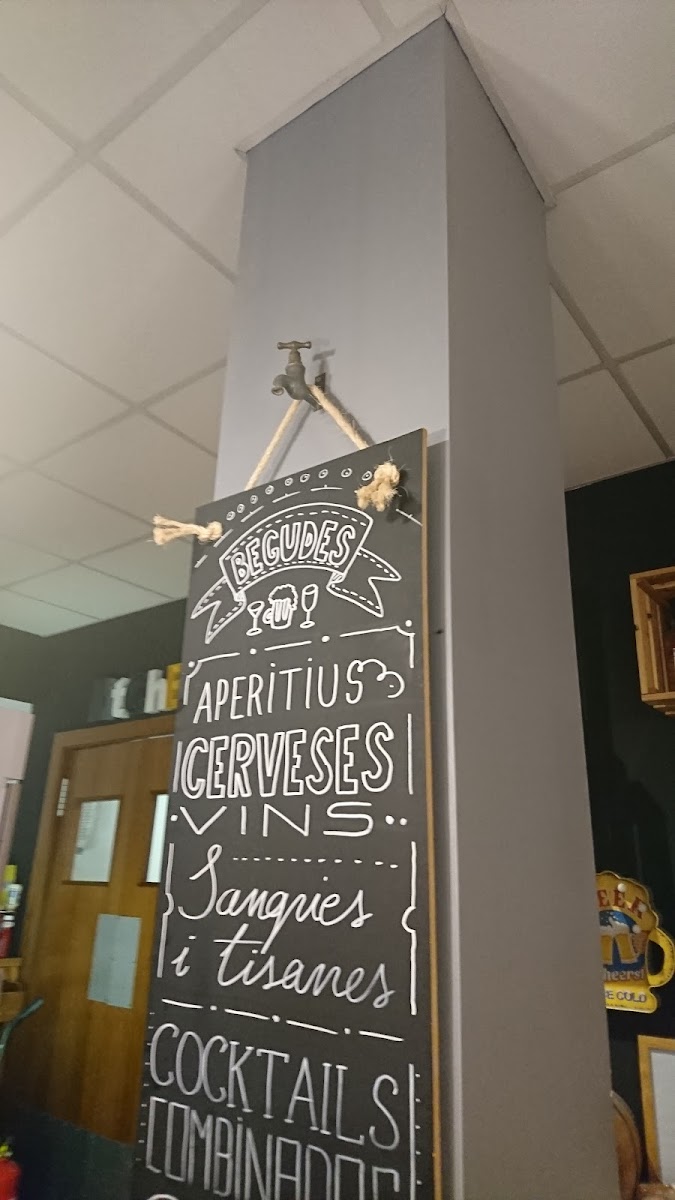 BEGUDES
APERITIUS
CERVESES
VINS
Sangries
i tisanes
COCKTAILS
COMBINADOS
BEER
Cheers!